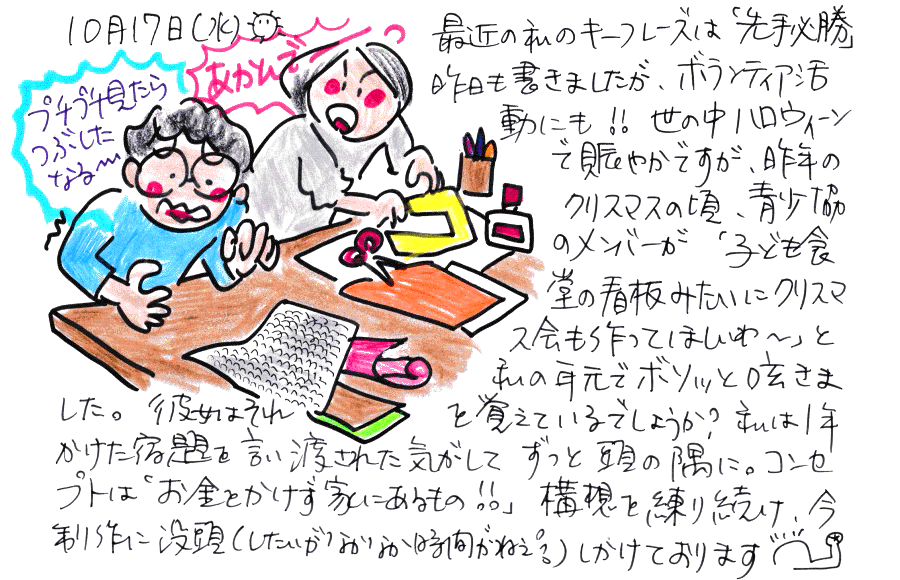 10月17日(水)
あかんで
プチプチ見たら
つぶした
なる〜
最近の私のキーフレーズは「先手必勝」
昨日も書きましたが、ボランティア活
動にも!! 世の中ハロウィーン
で賑やかですが、昨年の
クリスマスの頃、青少協
のメンバーが「子ども食
堂の看板みたいにクリスマ
ス会も作ってほしいわ〜」と
私の耳元でボソッと呟きま
した。彼女はそれを覚えているでしょうか?私は1年
かけた宿題を言い渡された気がして ずっと頭の隅に。コンセ
プトは「お金をかけず家にあるもの!!」構想を練り続け、今
制作に没頭(したいがなかなか時間がねぇ〜)しかけております